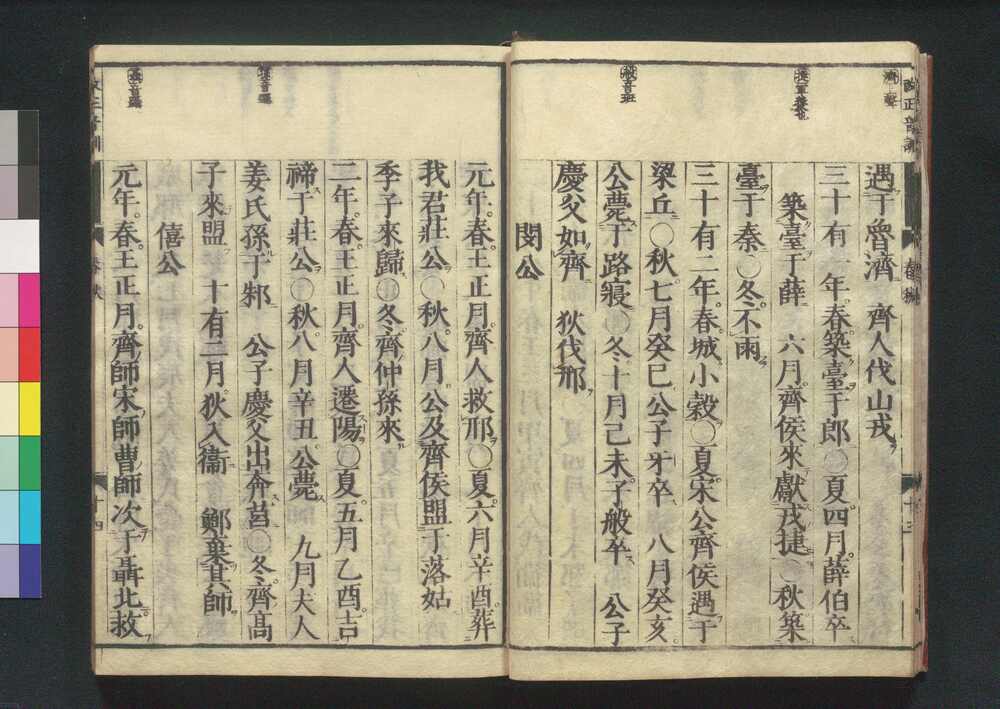 遇于魯濟　齊人伐山戎
三十有一年春築臺于郎〇夏四月薛伯卒
築臺于薛　六月齊侯來獻戎捷〇秋築
臺于秦〇冬不雨
三十有二年春城小穀〇夏宋公齊侯遇于
梁丘〇秋七月癸巳公子牙卒　八月癸亥
公薨于路寢〇冬十月己未子般卒　公子
慶父如齊　狄伐邢
閔公
元年春王正月齊人救邢〇夏六月辛酉葬
我君莊公〇秋八月公及齊侯盟于落姑
季子來歸〇冬齊仲孫來
二年春王正月齊人遷陽〇夏五月乙酉吉
禘于莊公〇秋八月辛丑公薨　九月夫人
姜氏孫于邾　公子慶父出奔莒〇冬齊高
子來盟　十有二月狄入衞　鄭棄其師
僖公
元年春王正月齊師宋師曹師次于聶北救
般音班
十三
十四